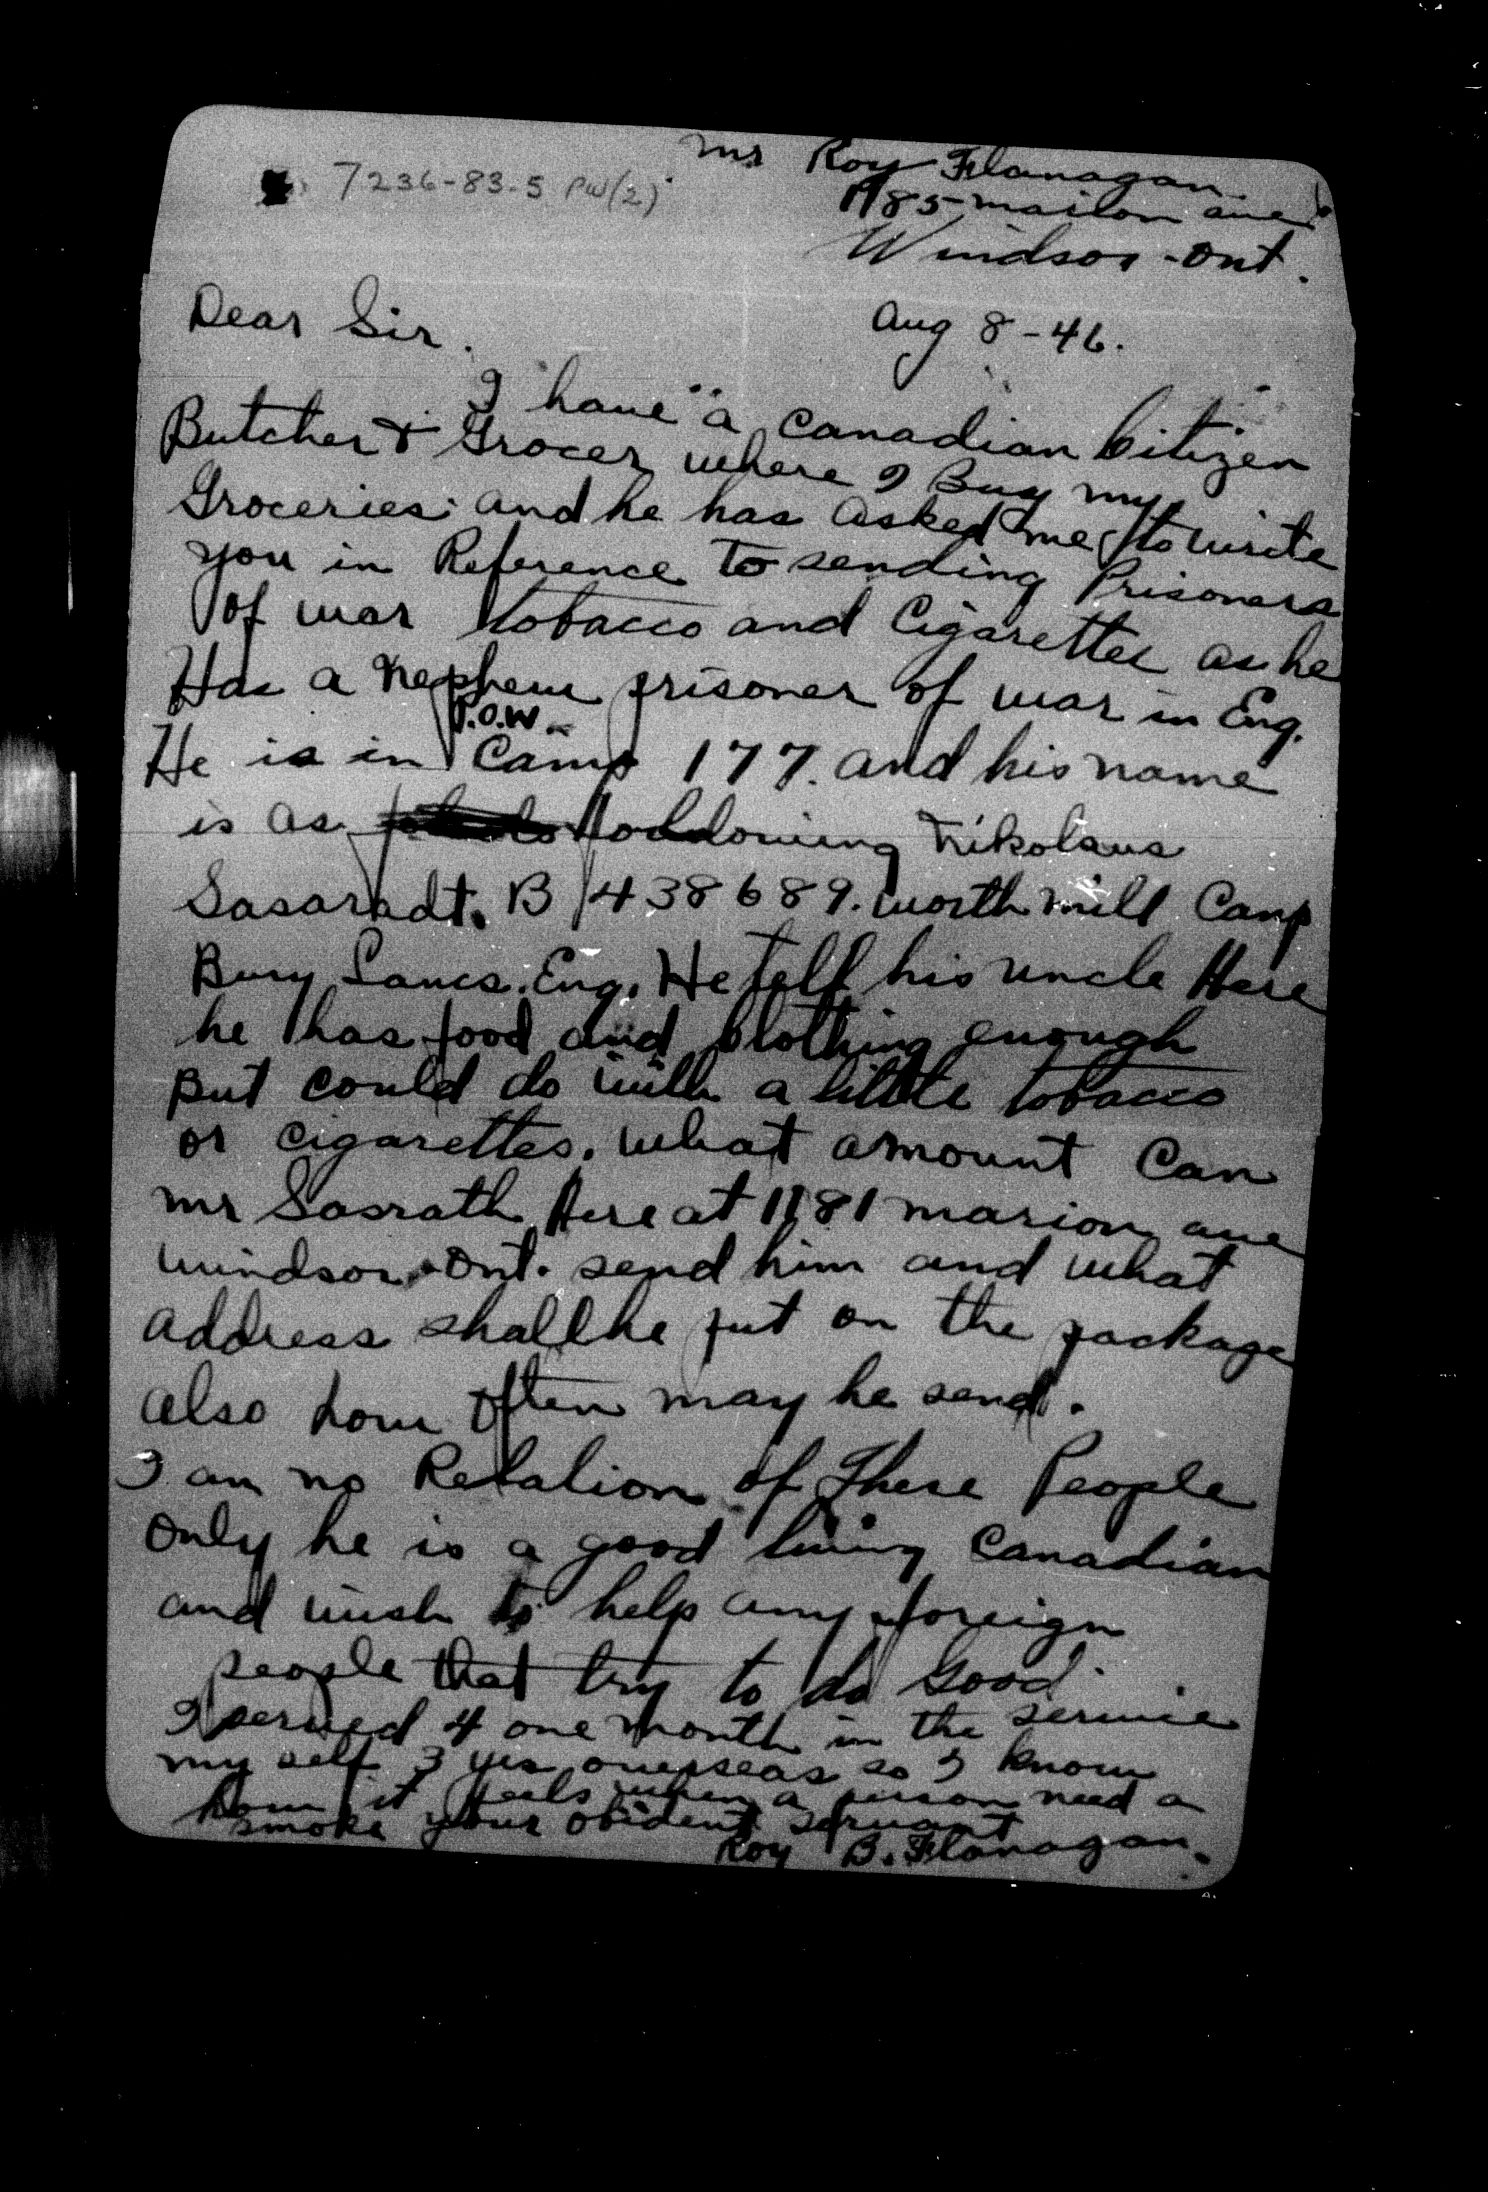 7236-83-5 PW(2)
Mr Roy Flanagan
1185 marion ave
Windsor - Ont.
Dear Sir.
Aug 8 - 46.
I have a Canadian Citizen
Butcher & Grocer where I Buy my
Groceries and he has asked me to write
you in Reference to sending Prisoners
of war tobacco and Cigarettes as he
Has a nephew prisoner of war in Eng.
P.O.W.
He is in Camp 177. and his name
is as Nikolaus
Sasaradt. B 438689. worth mill Camp
Bury Lancs. Eng. He tell his uncle Here
he has food and Clothing enough
But could do with a little tobacco
or cigarettes. what amount Can
mr Sasrath Here at 1181 marion ave
windsor Ont. send him and what
address shall he put on the package
also how often may he send.
I am no Relation of These People
only he is a good living Canadian
and wish to help any foreign
people that try to do Good
I served 4 one month in the service
my self 3 yrs overseas so I know
how it feels when a person need a
smoke your obident servant
Roy B. Flanagan.